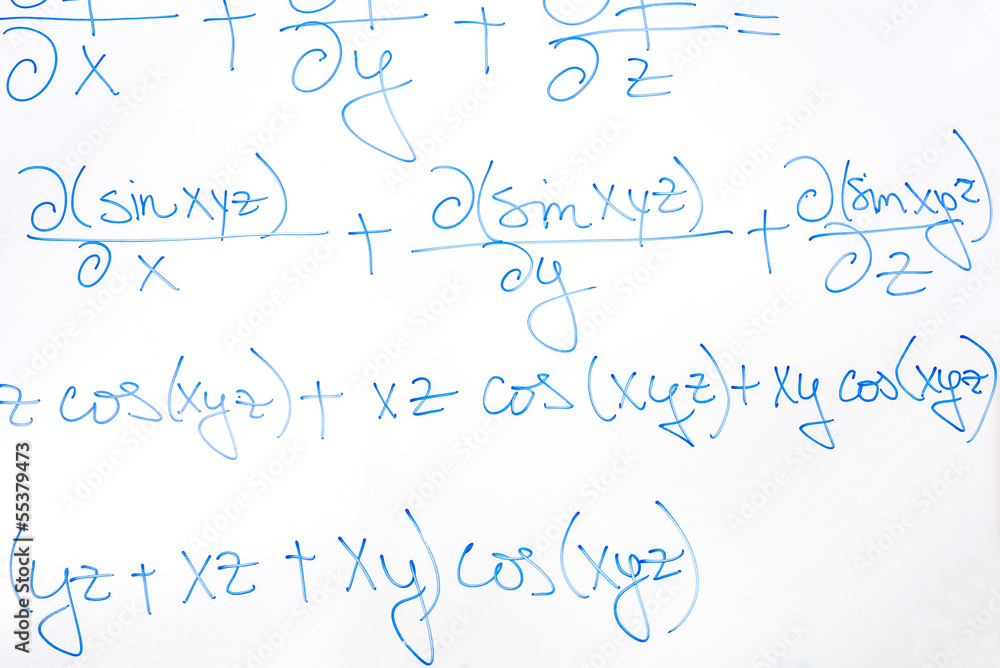 ∂x + ∂y + ∂z =
∂(sin xyz)/∂x + ∂(sin xyz)/∂y + ∂(sin xyz)/∂z
z cos(xyz) + xz cos(xyz) + xy cos(xyz)
(yz + xz + xy) cos(xyz)
Adobe Stock | #55379473